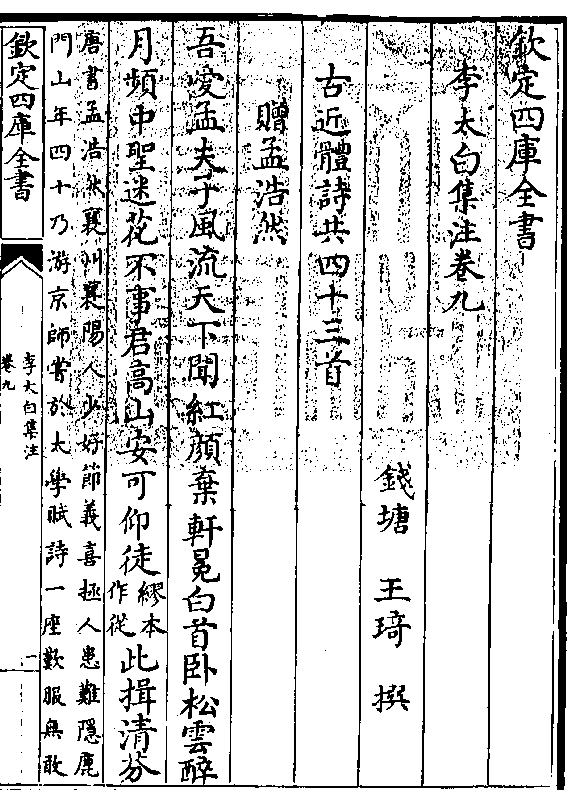 欽定四庫全書
李太白集注卷九
錢塘 王琦 撰
古近體詩共四十三首
贈孟浩然
吾愛孟夫子風流天下聞紅顏棄軒冕白首卧松雲醉
月頻中聖迷花不事君高山安可仰徒繆本作從此揖清芬
唐書孟浩然襄州襄陽人少好節義喜拯人患難隱鹿
門山年四十乃游京師嘗於太學賦詩一座歎服無敢
欽定四庫全書
李太白集注
卷九
一